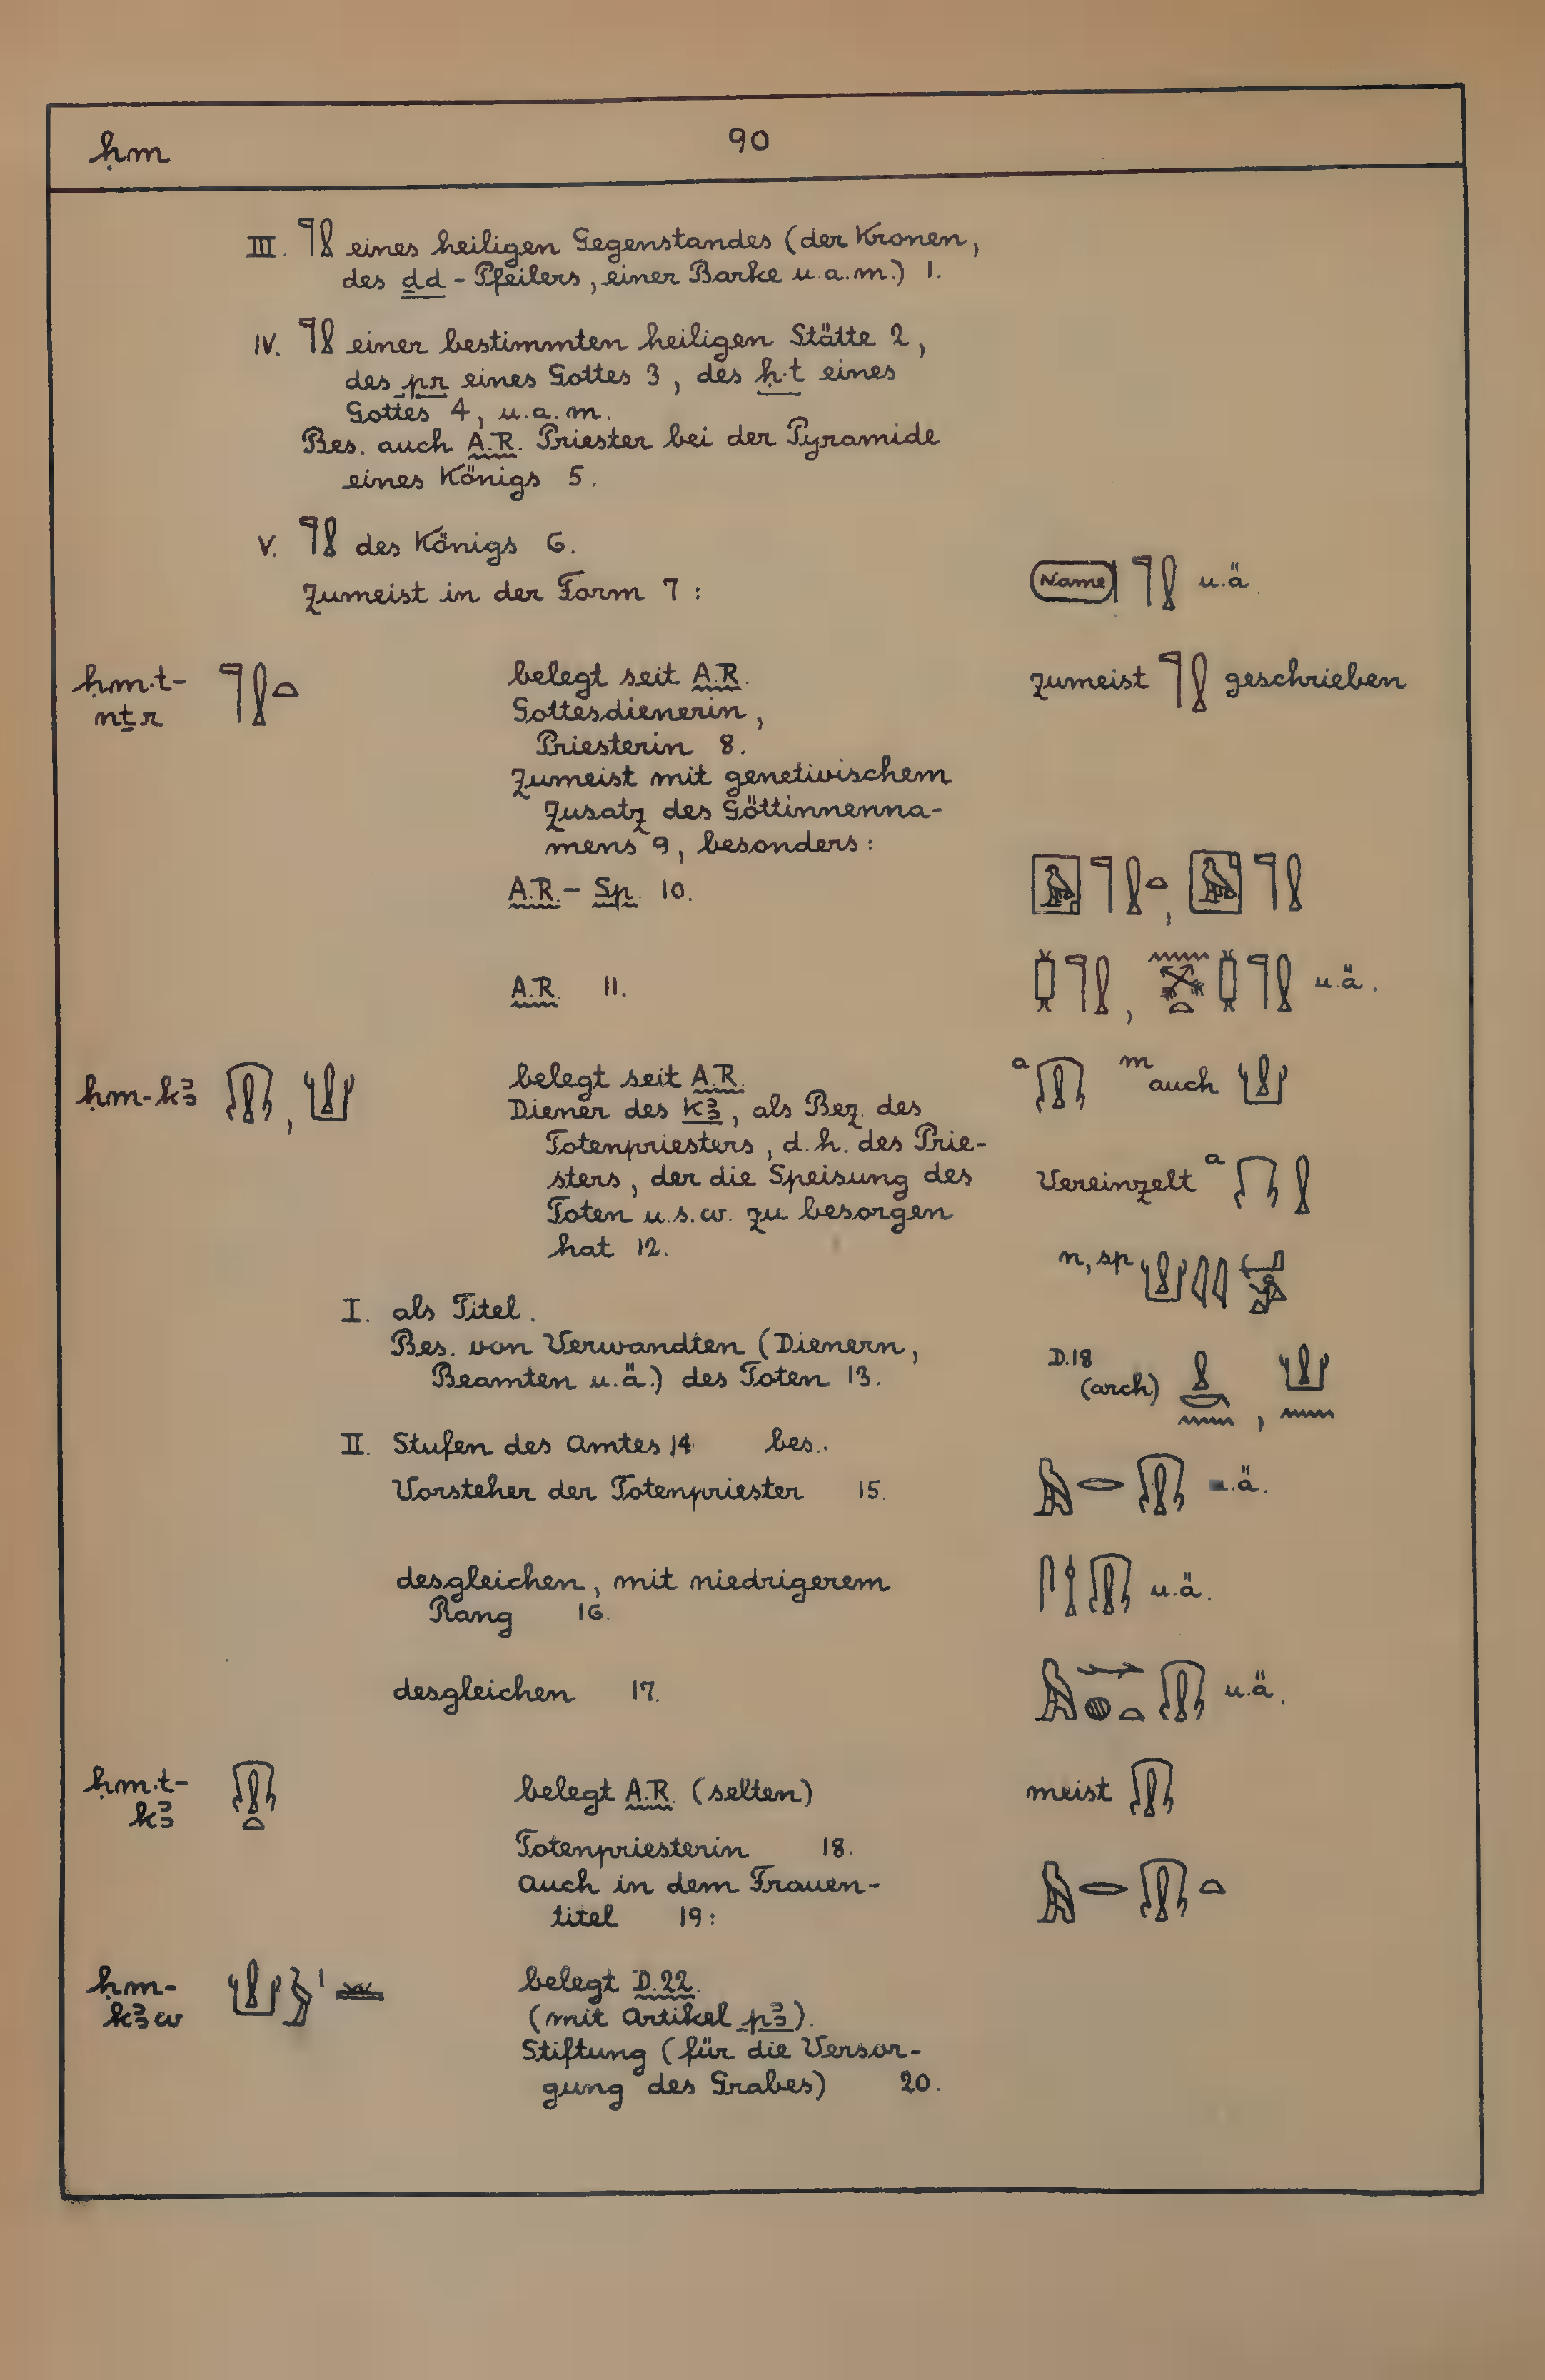 ḥm 90
III. 𓊹𓍛 eines heiligen Gegenstandes (der Kronen,
des ḏd - Pfeilers, einer Barke u.a.m.) 1.
IV. 𓊹𓍛 einer bestimmten heiligen Stätte 2,
des pr eines Gottes 3, des ḥ·t eines
Gottes 4, u.a.m.
Bes. auch A.R. Priester bei der Pyramide
eines Königs 5.
V. 𓊹𓍛 des Königs 6.
Zumeist in der Form 7 : (Name) 𓊹𓍛 u.ä.
ḥm·t-
nṯr 𓊹𓍛𓏏
belegt seit A.R. zumeist 𓊹𓍛 geschrieben
Gottesdienerin,
Priesterin 8.
Zumeist mit genetivischem
Zusatz des Göttinnenna-
mens 9, besonders:
A.R. - Sp. 10. 𓉡𓊹𓍛𓏏, 𓉡𓊹𓍛
A.R. 11. u.ä.
ḥm-kꜣ
belegt seit A.R. a m auch
Diener des Kꜣ, als Bez. des
Totenpriesters, d.h. des Prie-
sters, der die Speisung des Vereinzelt a
Toten u.s.w. zu besorgen
hat 12. n, sp
I. als Titel.
Bes. von Verwandten (Dienern,
Beamten u.ä.) des Toten 13. D.18
(arch)
II. Stufen des Amtes 14 bes..
Vorsteher der Totenpriester 15. u.ä.
desgleichen, mit niedrigerem
Rang 16. u.ä.
desgleichen 17. u.ä.
ḥm·t-
kꜣ
belegt A.R. (selten) meist
Totenpriesterin 18.
auch in dem Frauen-
titel 19:
ḥm-
kꜣw
belegt D.22.
(mit Artikel pꜣ).
Stiftung (für die Versor-
gung des Grabes) 20.